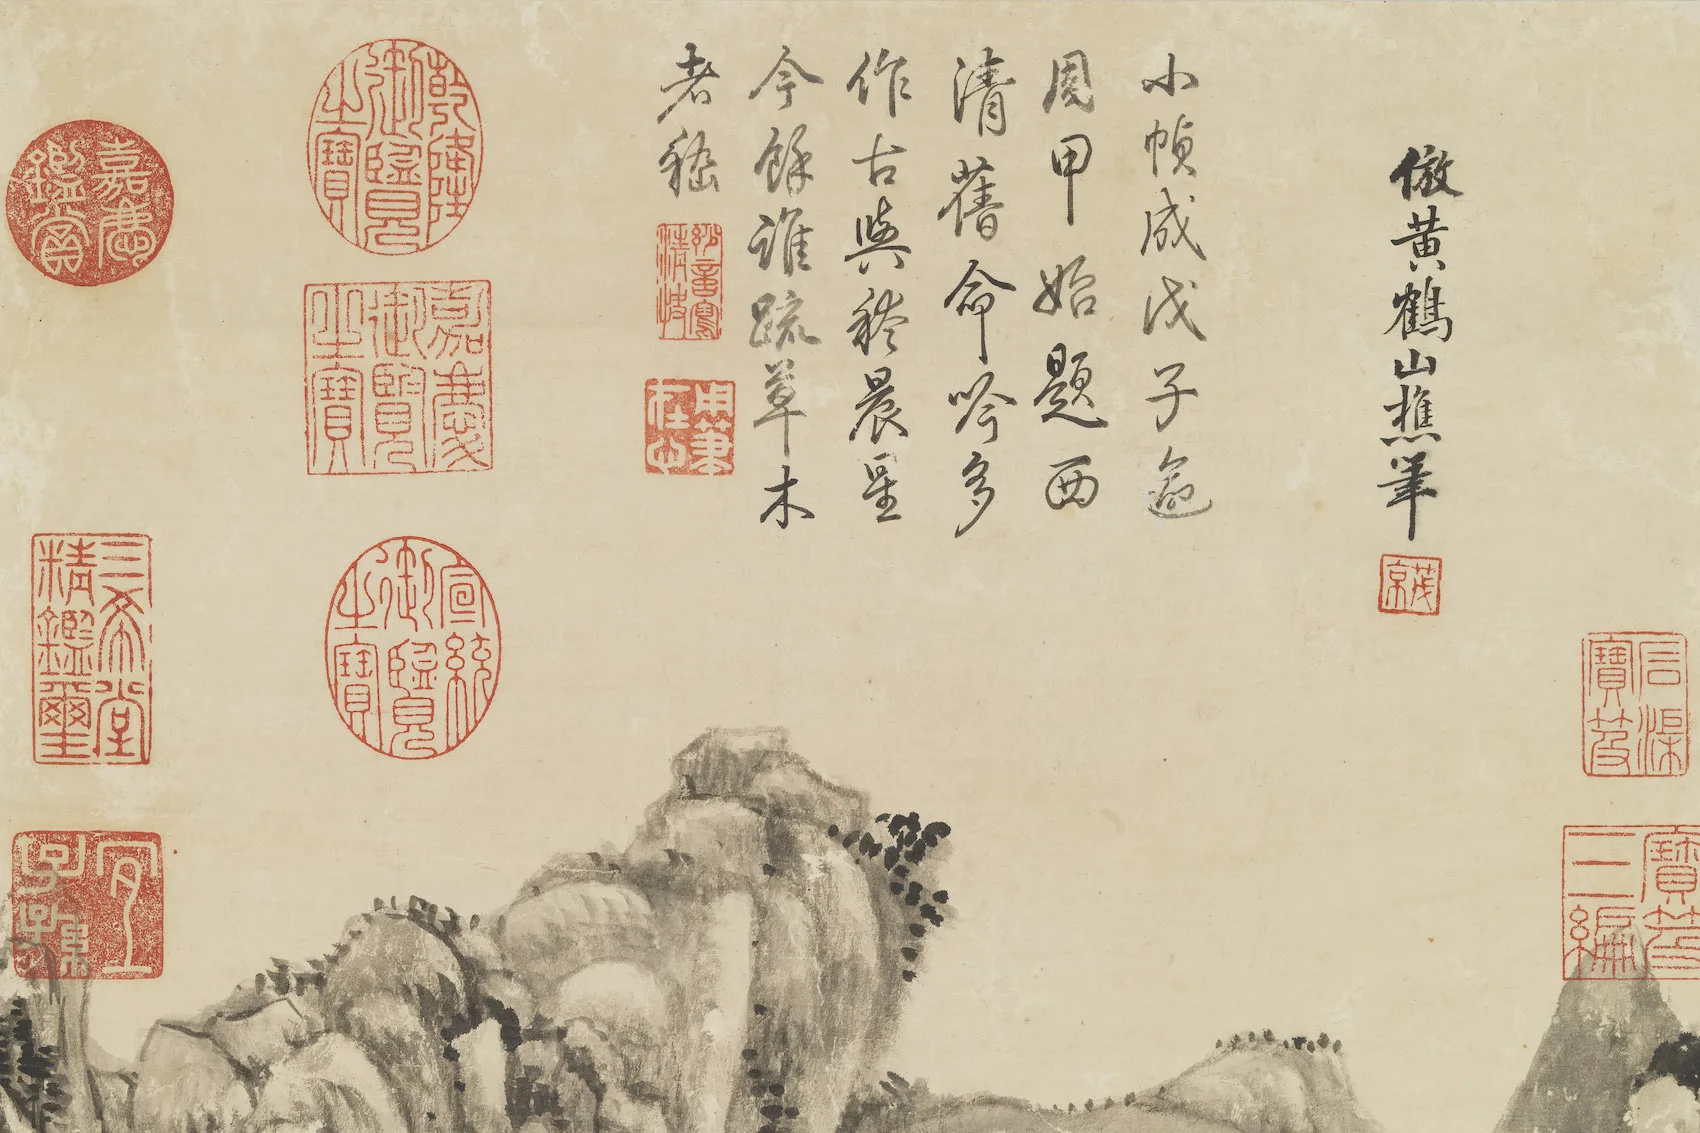 倣黃鶴山樵筆
茂京
小幀成戊子逾
周甲始題西
清舊命吟多
作古與稀晨星
今餘誰疏草木
老嵇
乾隆御覽之寶
嘉慶御覽之寶
宣統御覽之寶
嘉慶鑑賞
三希堂精鑑璽
宜子孫
石渠寶笈
寶笈三編